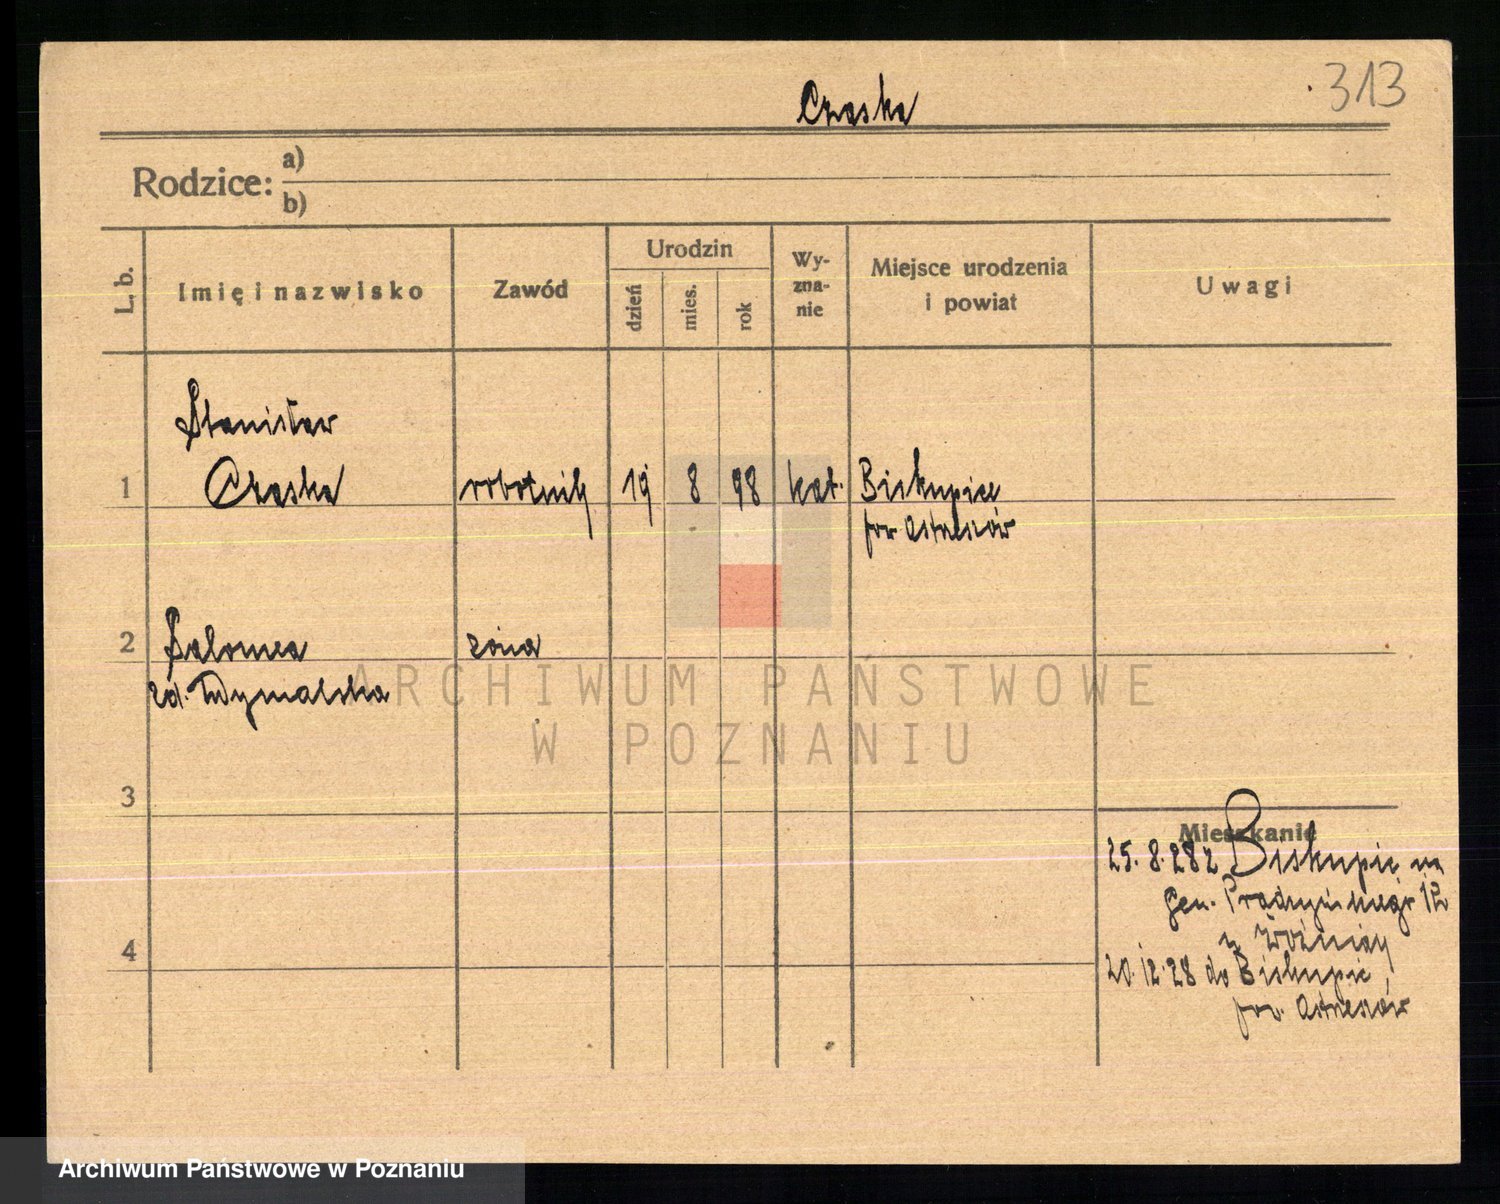 313
Czaska
Rodzice: a)
b)
L. b.
Imię i nazwisko
Zawód
Urodzin
dzień
mies.
rok
Wy-
zna-
nie
Miejsce urodzenia
i powiat
Uwagi
Stanisław
1 Czaska robotnik 19 8 98 kat. Biskupice
pow Ostrzeszów
2 Salomea żona
zd.
3
4
Mieszkanie
25.8.28 z Biskupic na
Gen. Prądzyńskiego 12
z Woźnicy
20.12.28 do Biskupic
pow. Ostrzeszów
ARCHIWUM PAŃSTWOWE
W POZNANIU
Archiwum Państwowe w Poznaniu